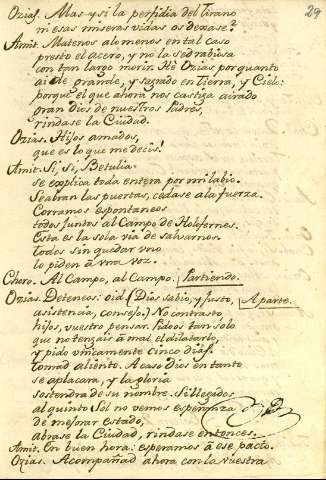 29
Ozias. Mas y si la perfidia del Tirano
mi esas miseras vidas os dexase?
Amit. Matenos alomenos en tal caso
presto el acero, y no la sed rabiosa
con tan largo morir. Hè Ozias por quanto
ai de grande, y sagrado en Tierra, y Cielo:
porque el que ahora nos castiga airado
gran Dios de nuestros Padres,
rindase la Ciudad.
Ozias. Hijos amados,
que es lo que me decis!
Amit. Si, si, Betulia
se explica toda entera por mi labio.
Seabran las puertas, cedase a la fuerza.
Corramos espontaneos
todos juntos al Campo de Holofernes.
Esta es la sola via de salvarnos.
Todos sin quedar uno
lo piden à una voz.
Choro. Al Campo, al Campo. Partiendo.
Ozias. Deteneos: oid (Dios sabio, y justo, Aparte.
asistencia, consejo.) No contrasto,
hijos, vuestro pensar. Pidoos tan solo
que no tengais à mal el dilatarlo,
y pido unicamente cinco dias.
tomad aliento. Acaso Dios en tanto
se aplacara, y la gloria
sostendra de su nombre. Si llegados
al quinto Sol no vemos esperanza
de mejorar estado,
abrase la Ciudad, rindase entonces.
Amit. En buen hora: esperamos à ese pacto.
Ozias. Acompañad ahora con la vuestra